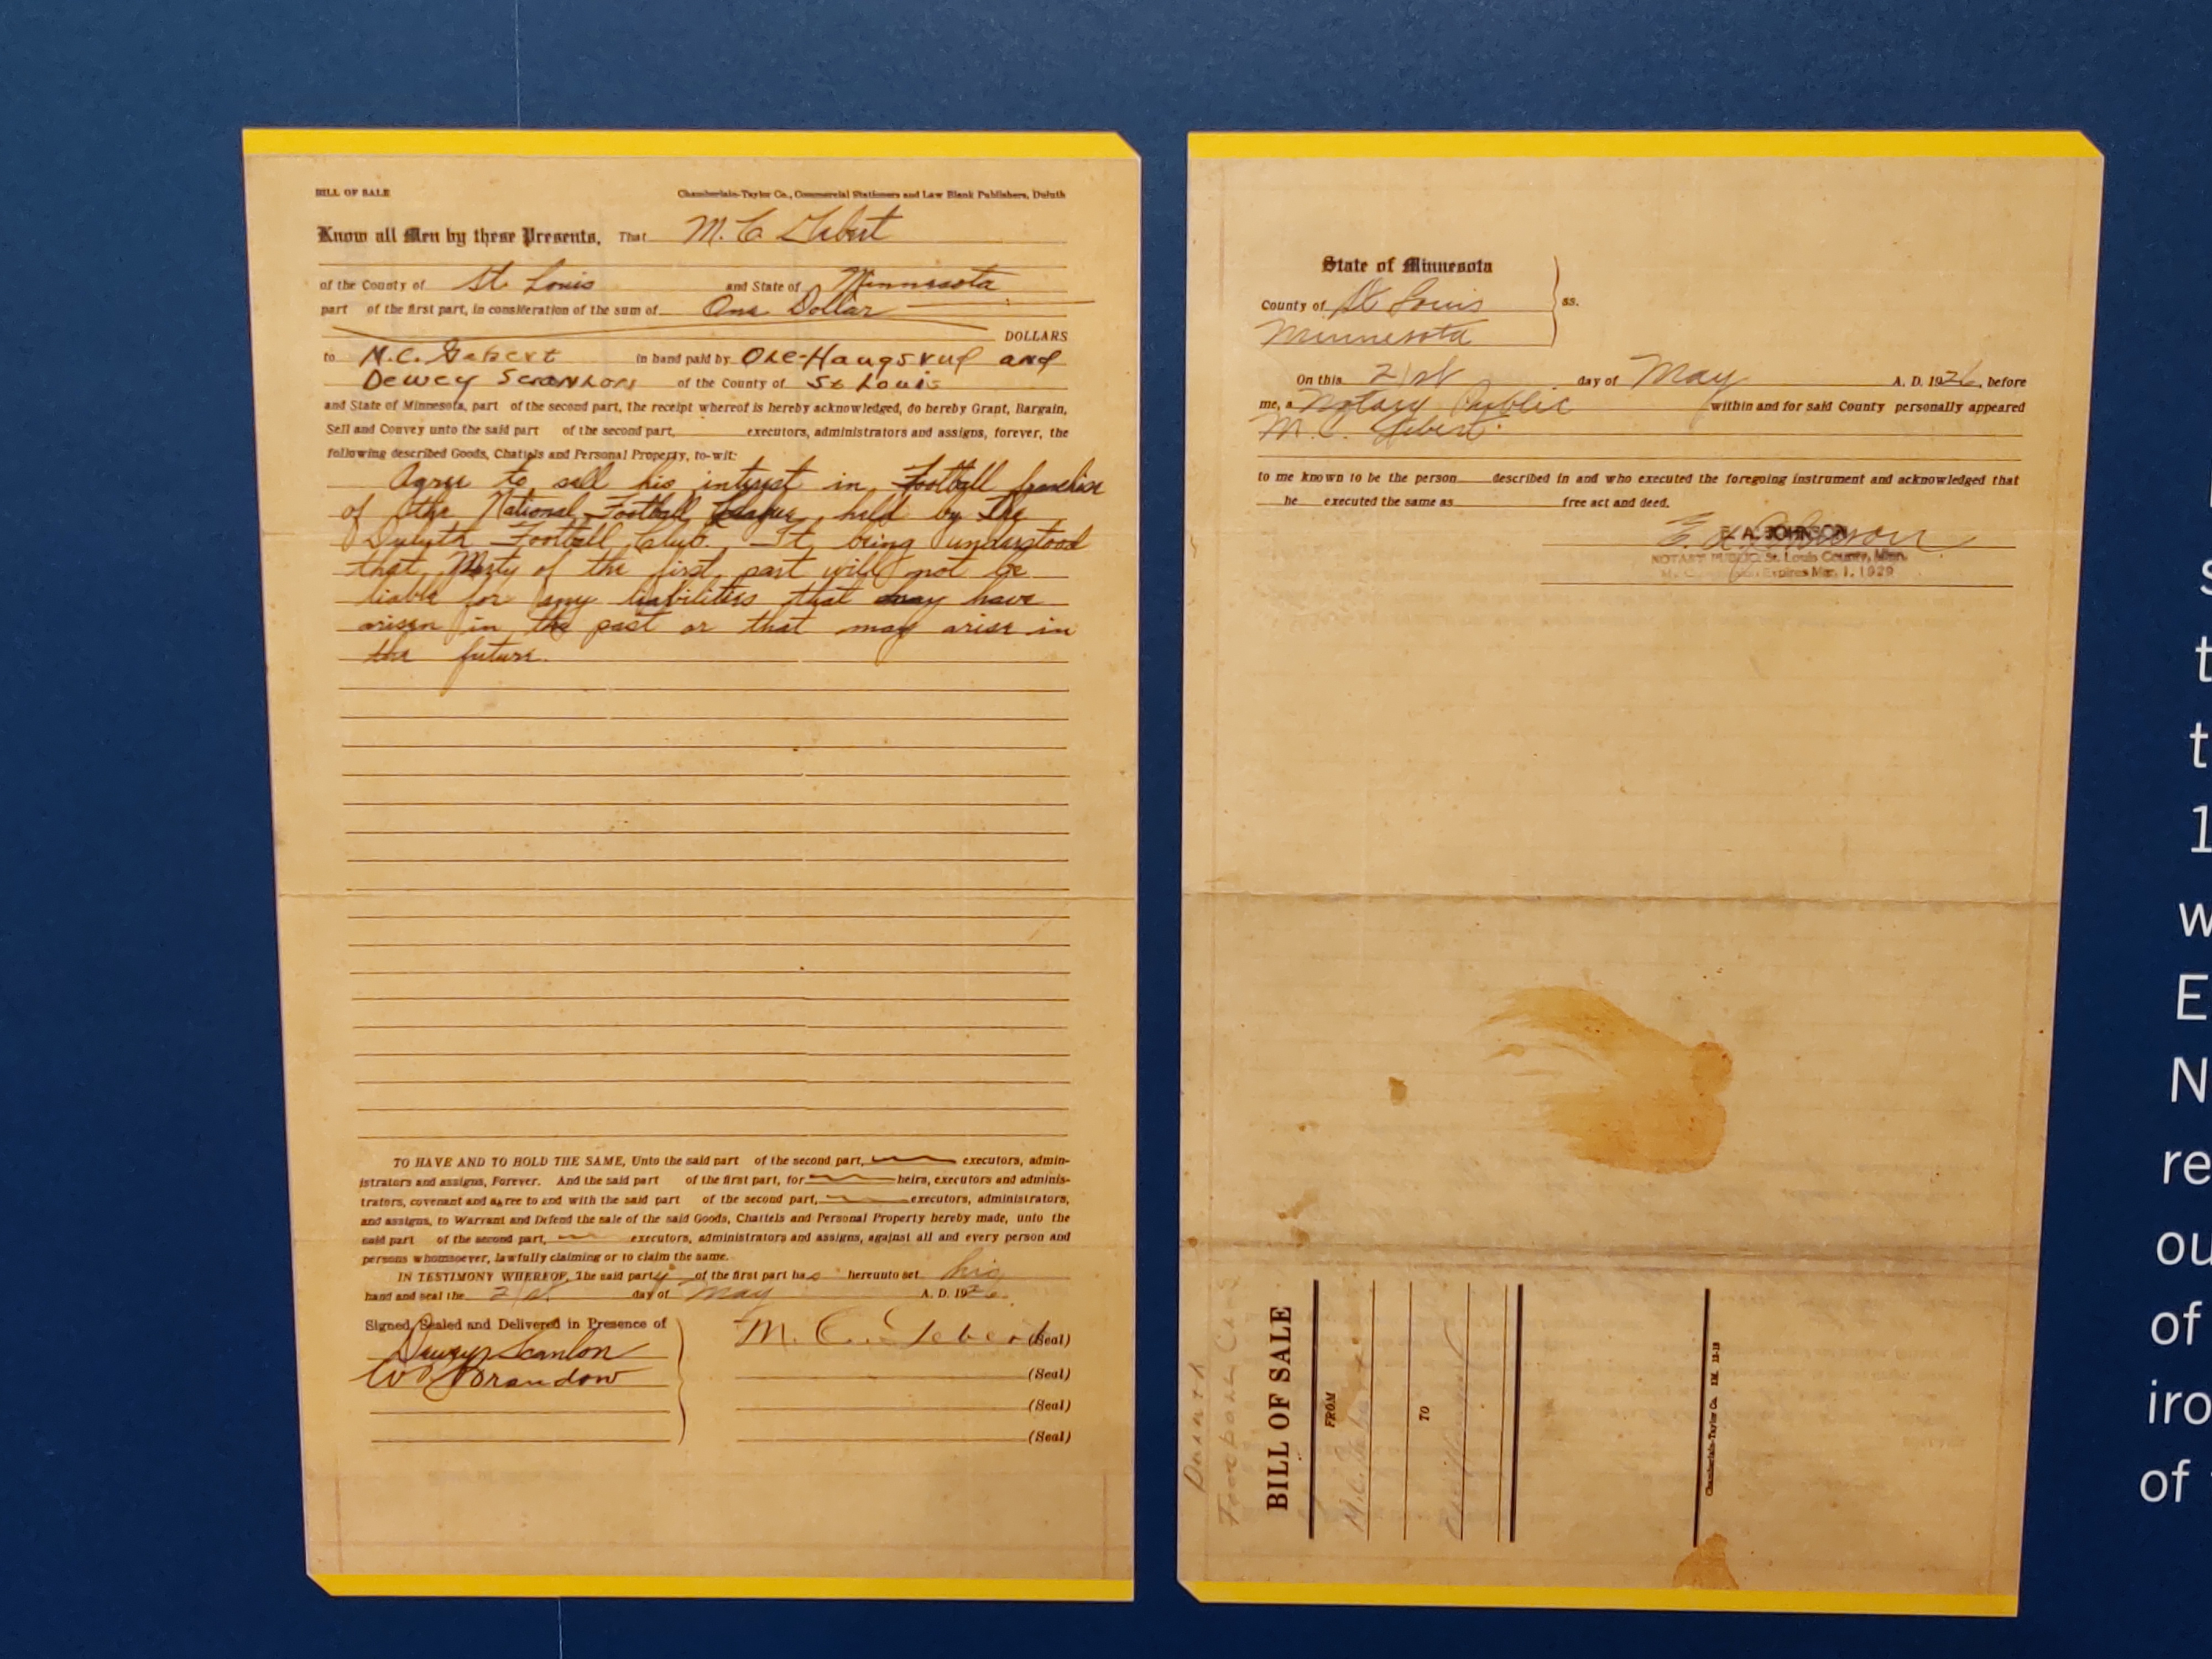 BILL OF SALE
Chamberlain-Taylor Co., Commercial Stationers and Law Blank Publishers, Duluth
Know all Men by these Presents, That M. C. Gebert
of the County of St. Louis and State of Minnesota
part of the first part, in consideration of the sum of One Dollar
DOLLARS
to M.C. Gebert in hand paid by Ole-Haugsrud and
Dewey Scanlon of the County of St Louis
and State of Minnesota, part of the second part, the receipt whereof is hereby acknowledged, do hereby Grant, Bargain,
Sell and Convey unto the said part of the second part, executors, administrators and assigns, forever, the
following described Goods, Chattels and Personal Property, to-wit:
Agree to sell his interest in Football franchise
of the National Football League held by The
Duluth Football Club. It being understood
that Party of the first part will not be
liable for any liabilities that may have
arisen in the past or that may arise in
the future.
TO HAVE AND TO HOLD THE SAME, Unto the said part of the second part, executors, admin-
istrators and assigns, Forever. And the said part of the first part, for heirs, executors and adminis-
trators, covenant and agree to and with the said part of the second part, executors, administrators,
and assigns, to Warrant and Defend the sale of the said Goods, Chattels and Personal Property hereby made, unto the
said part of the second part, executors, administrators and assigns, against all and every person and
persons whomsoever, lawfully claiming or to claim the same.
IN TESTIMONY WHEREOF, The said party of the first part has hereunto set his
hand and seal the 21st day of May A. D. 1926.
Signed, Sealed and Delivered in Presence of
Dewey Scanlon
M. C. Gebert (Seal)
Brandow
(Seal)
(Seal)
(Seal)
State of Minnesota
County of St Louis ss.
Minnesota
On this 21st day of May A. D. 1926, before
me, a Notary Public within and for said County personally appeared
M. C. Gebert.
to me known to be the person described in and who executed the foregoing instrument and acknowledged that
he executed the same as free act and deed.
E. A. Johnson
E. A. JOHNSON
NOTARY PUBLIC, St. Louis County, Minn.
Expires Mar. 1, 1929
Duluth
Football Club
BILL OF SALE
FROM
M.C. Gebert
TO
Chamberlain-Taylor Co. 1M. 12-18
S
t
t
1
w
E
N
re
ou
of
iro
of